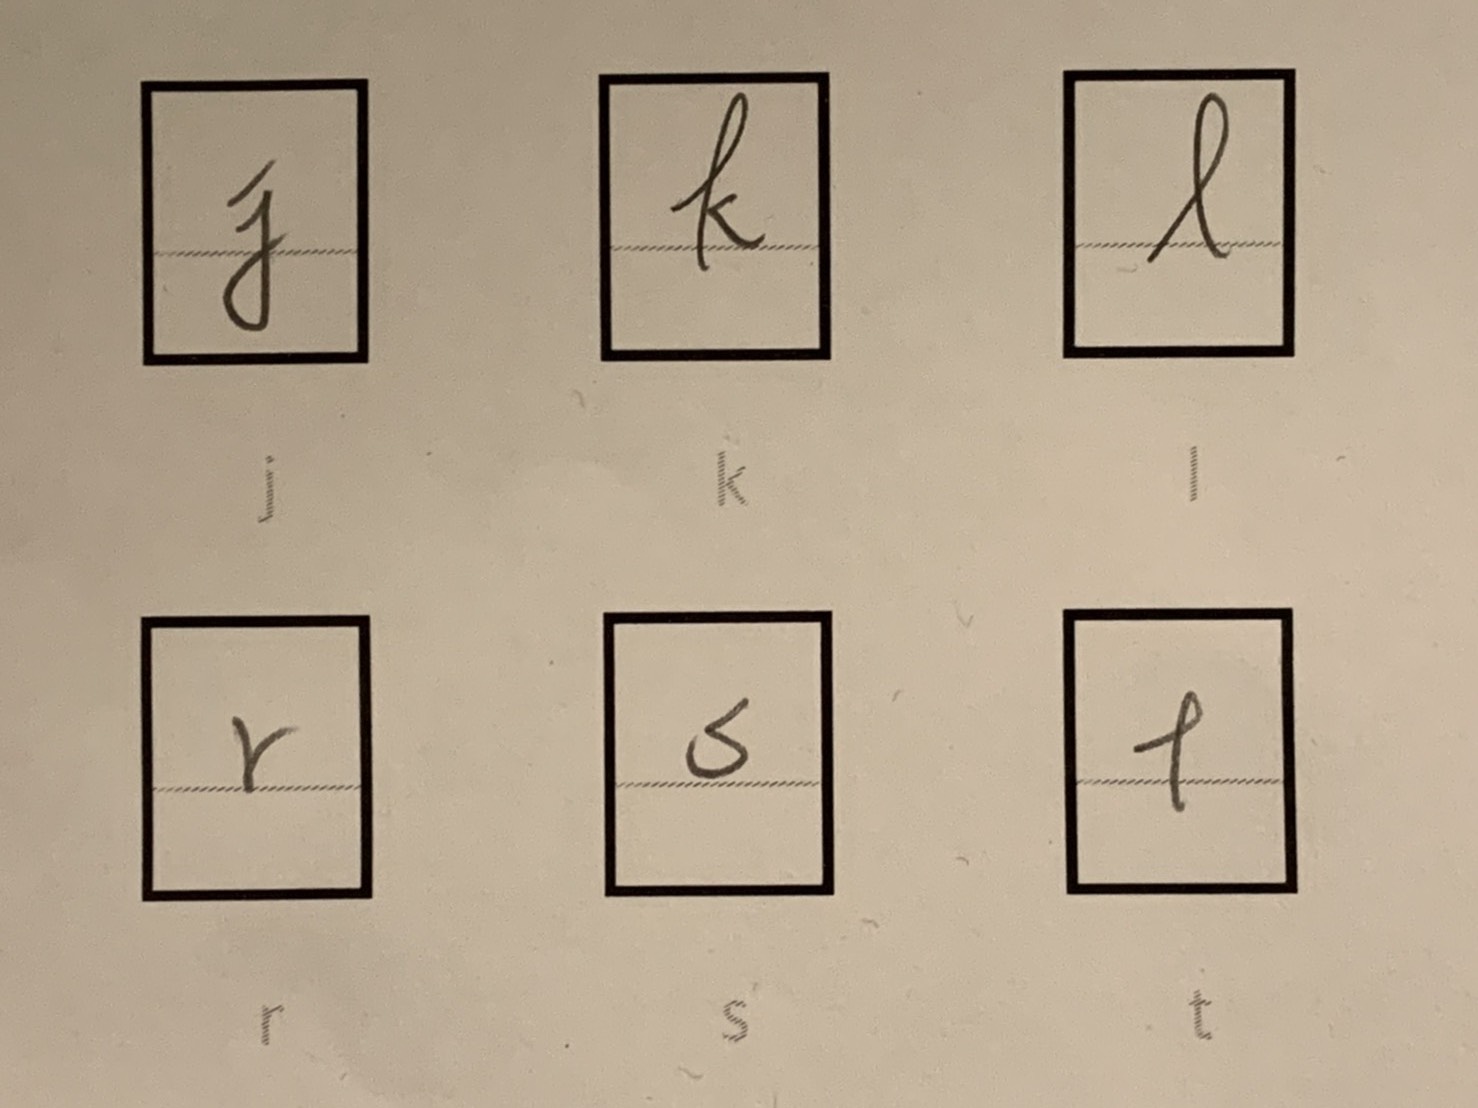 j k l
j k l
r s t
r s t